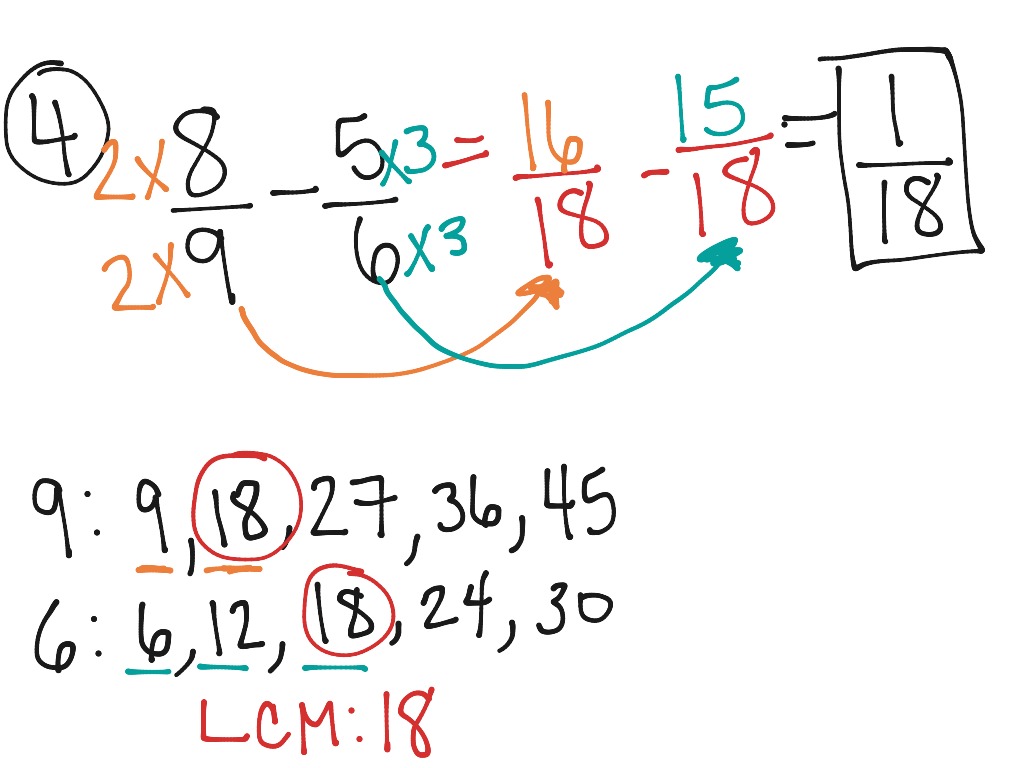 4 2x8/2x9 - 5x3/6x3 = 16/18 - 15/18 = 1/18
9: 9, 18, 27, 36, 45
6: 6, 12, 18, 24, 30
LCM: 18